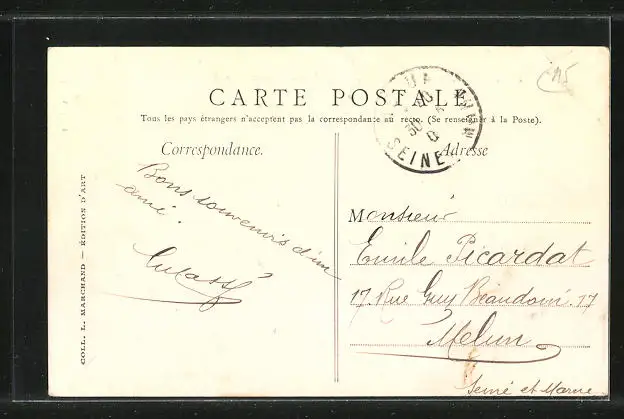 CARTE POSTALE
Tous les pays étrangers n'acceptent pas la correspondance au recto. (Se renseigner à la Poste).
Correspondance.
Adresse
SEINE
Bons souvenirs d'un
ami.
COLL. L. MARCHAND — ÉDITION D'ART
Monsieur
Emile Picardat
17. Rue Guy Beaudoin. 17
Melun
Seine et Marne